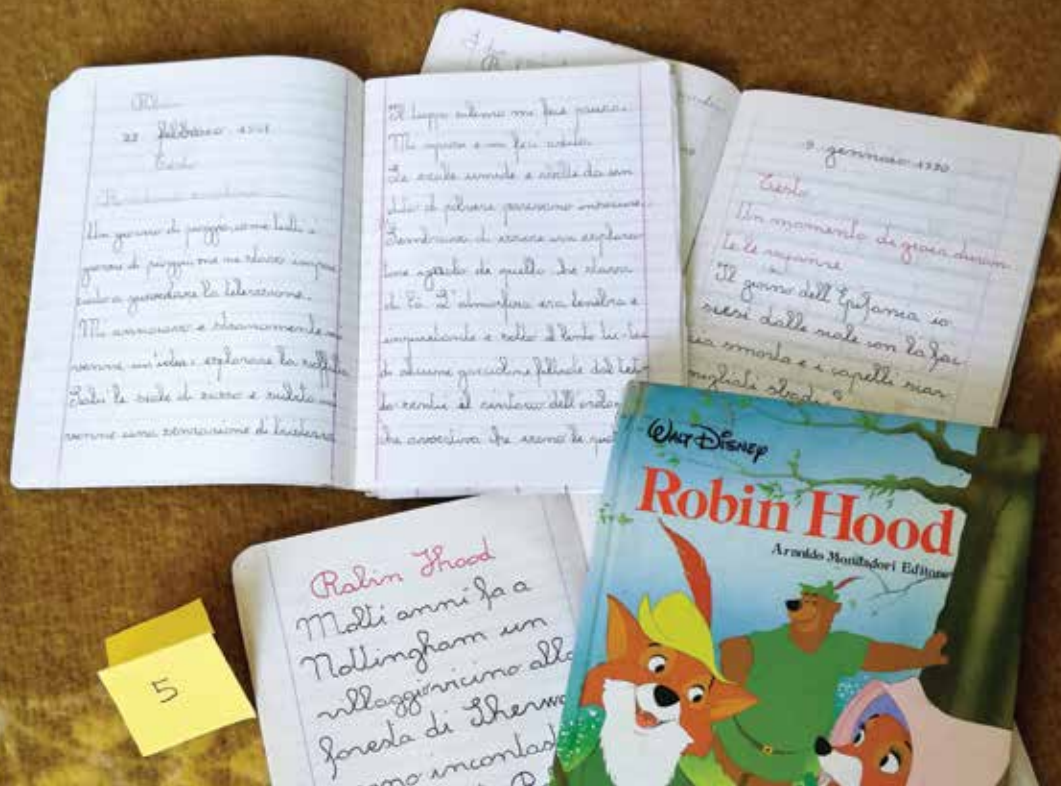 22 febbraio
Testo
Un giorno di pioggia, come tutti i
giorni di pioggia me ne stavo
a guardare la televisione.
Mi annoiavo e stranamente mi
venne un'idea: esplorare la soffitta
Salii le scale di corsa e subito mi
venne una sensazione di tristezza
Il lungo silenzio mi fece paura.
Mi e mi feci
Le scale umide e
di polvere parevano
Sembrava di essere un esplora
tore di quello che stava
di là. L'atmosfera era tenebra e
e sotto il lento tic-tac
di alcune goccioline filtrate dal tet
to sentii il
che avvertiva che erano le
9 gennaio 1990
Testo
Un momento di gioia duran
te le vacanze
Il giorno dell'Epifania io
scesi dalle scale con la fac
cia smorta e i capelli scar
migliati
Robin Hood
Molti anni fa a
Nottingham un
villaggio vicino alla
foresta di Sherwo
5
WALT DISNEY
Robin Hood
Arnoldo Mondadori Editore